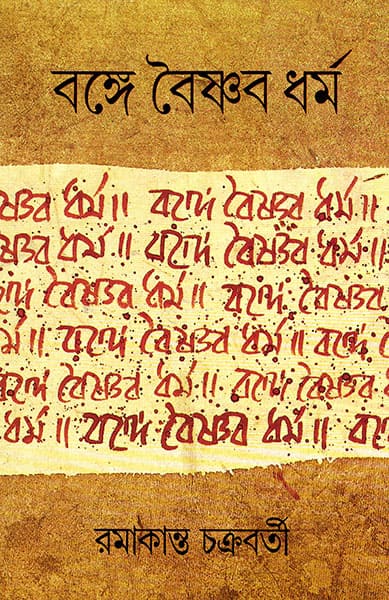 বঙ্গে বৈষ্ণব ধর্ম
ষ্ণব ধর্ম॥ বঙ্গে বৈষ্ণব ধর্ম॥
ষ্ণব ধর্ম॥ বঙ্গে বৈষ্ণব ধর্ম॥
বঙ্গে বৈষ্ণব ধর্ম॥ বঙ্গে বৈষ্ণব
র্ম॥ বঙ্গে বৈষ্ণব ধর্ম॥ বঙ্গে বৈ
বঙ্গে বৈষ্ণব ধর্ম॥ বঙ্গে বৈষ্ণব ধ
ধর্ম॥ বঙ্গে বৈষ্ণব ধর্ম॥ বঙ্গে
রমাকান্ত চক্রবর্তী